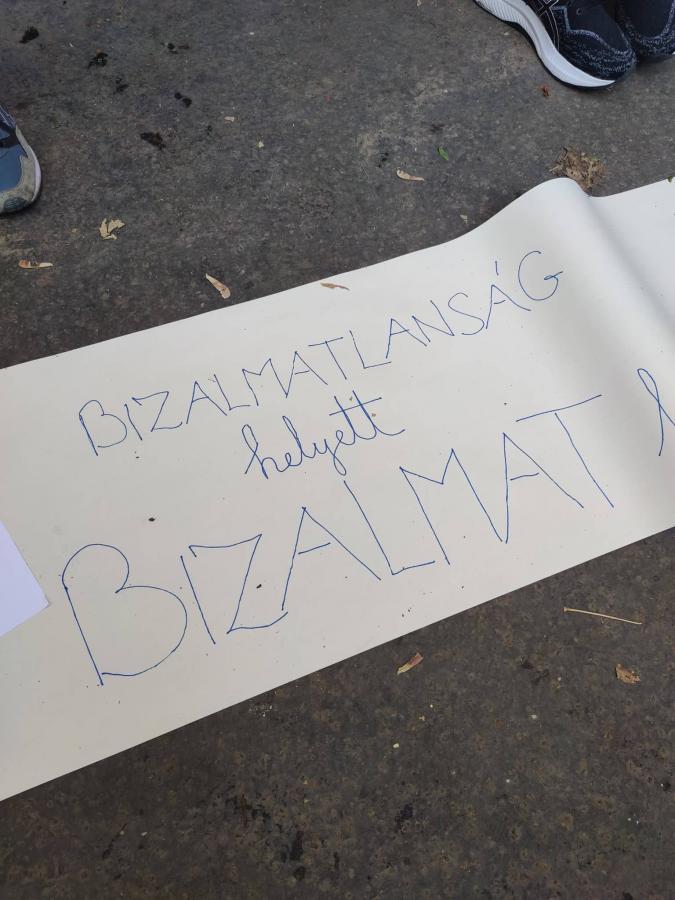 BIZALMATLANSÁG
helyett
BIZALMAT